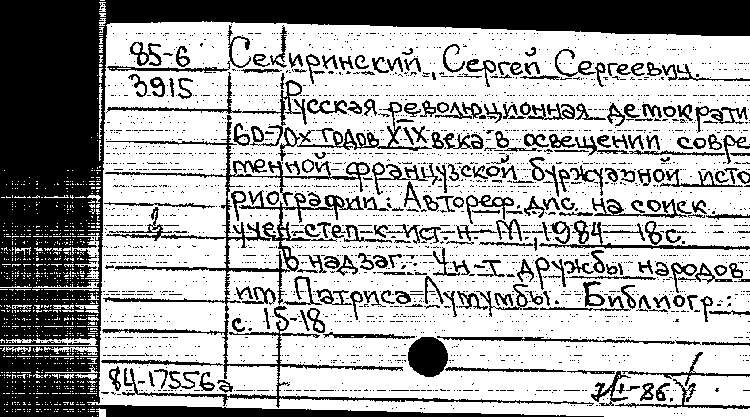 85-6 Секиринский, Сергей Сергеевич.
3915
Русская революционная демократи
60-70х годов XIX века в освещении совре
менной французской буржуазной исто
риографии: Автореф. дис. на соиск.
учен. степ. к. ист. н. - М., 1984. 18 с.
В надзаг.: Ун-т дружбы народов
им. Патриса Лумумбы. Библиогр.:
с. 15-18
84-17556а